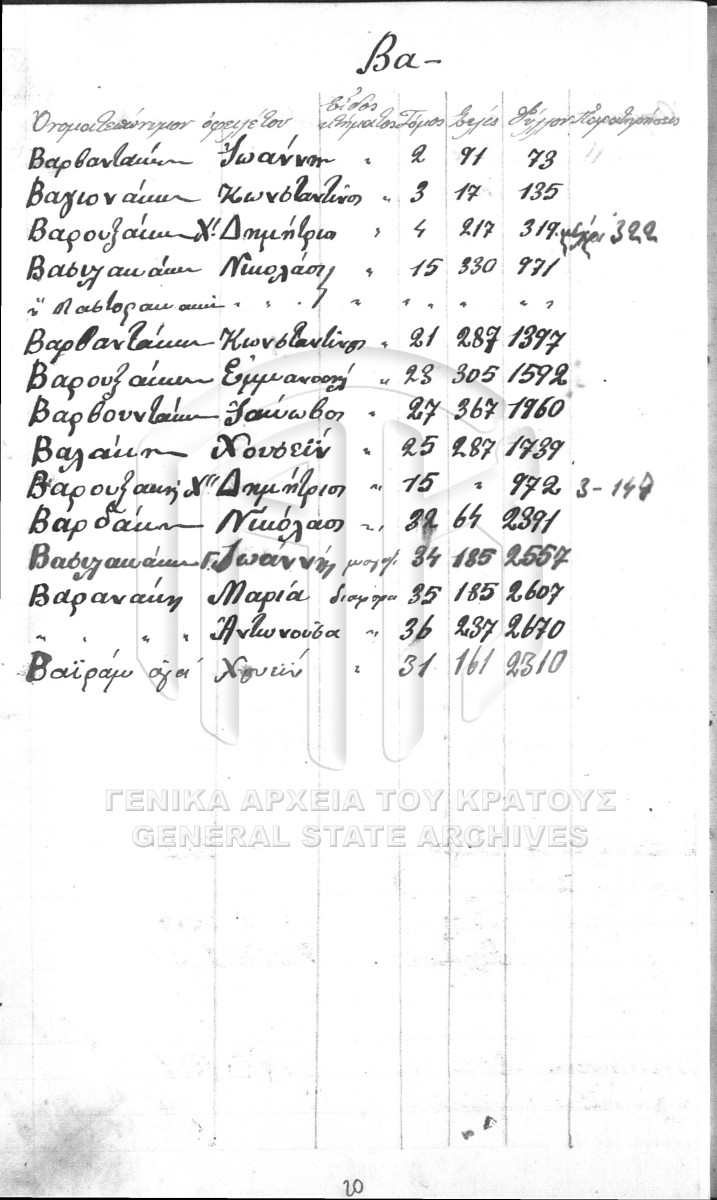 Βα-
Ὀνοματεπώνυμον ὀφειλέτου Εἶδος κτήματος Τόμος Σελίς Φύλλον Παρατηρήσεις
Βαρβαντάκη Ἰωάννη " 2 91 73
Βαγιονάκη Κωνσταντῖνος " 3 17 135
Βαρουξάκη Χ! Δημήτριος " 4 217 319 μέχρι 322
Βασιλακάκη Νικολάου " 15 330 971
ἢ Μαστορακάκη " " " " " " " "
Βαρβαντάκη Κωνσταντῖνος " 21 287 1397
Βαρουξάκη Ἐμμανουήλ " 23 305 1592
Βαρβουντάκη Ἰάκωβος " 27 367 1960
Βαλάκη Χουσεΐν " 25 287 1739
Βαρουξακη Χ" Δημήτριος " 15 " 972 3-147
Βαρδάκη Νικόλαος " 32 64 2391
Βασιλακάκη Γ. Ἰωάννης 34 185 2557
Βαρανάκη Μαρία διάφορα 35 185 2607
" " " " Ἀντωνούσα " 36 237 2670
Βαϊράμ ἀγα Χουσεΐν " 31 161 2310
ΓΕΝΙΚΑ ΑΡΧΕΙΑ ΤΟΥ ΚΡΑΤΟΥΣ
GENERAL STATE ARCHIVES
20